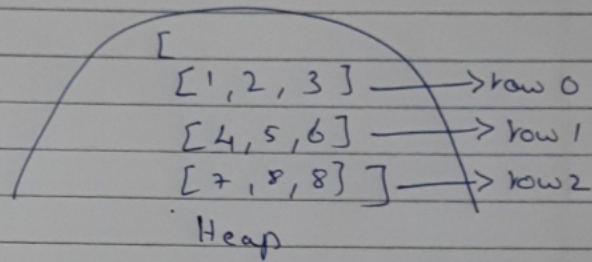 [
[1, 2, 3] → row 0
[4, 5, 6] → row 1
[7, 8, 8] ] → row 2
Heap